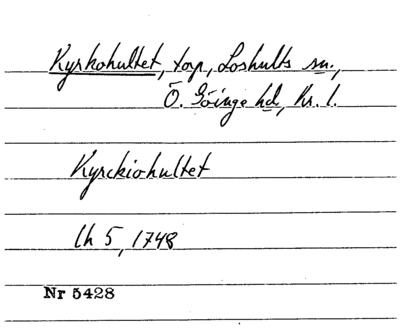 Kyrkohultet, torp, Loshults sn.,
Ö. Göinge hd, Kr. l.
Kyrckiohultet
lh 5, 1748
Nr 5428